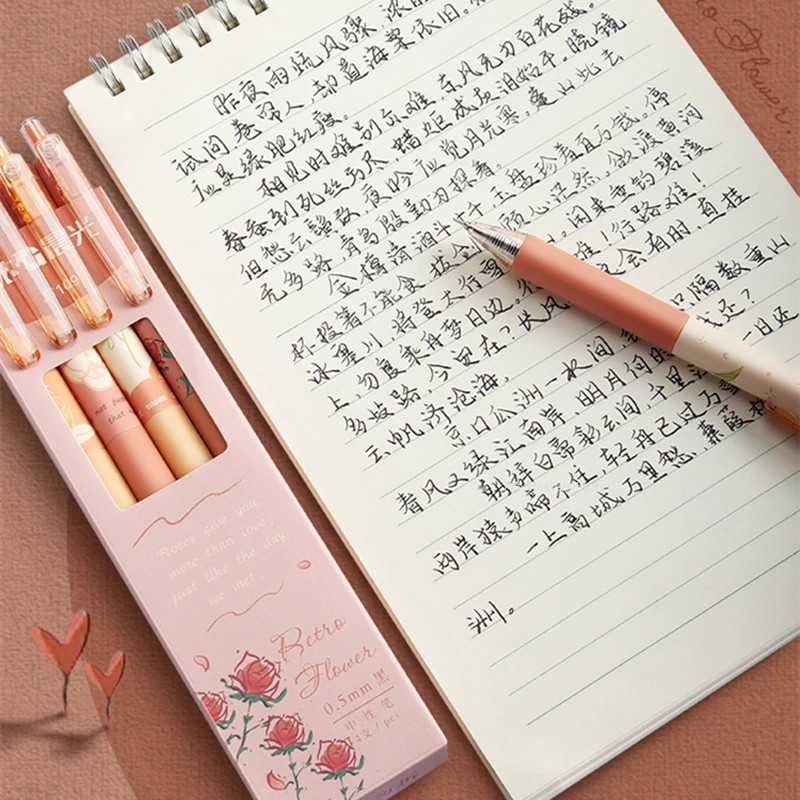 昨夜雨疏风骤,浓
试问卷帘人,却道海棠依旧。
应是绿肥红瘦。
相见时难别亦难,东风无力百花残。
春蚕到死丝方尽,蜡炬成灰泪始干。晓镜
但愁云鬓改,夜吟应觉月光寒。蓬山此去
无多路,青鸟殷勤为探看。
金樽清酒斗十千 玉盘珍羞直万钱。停
杯投箸不能食,拔 顾心茫然。欲渡黄河
冰塞川,将登太行雪 闲来垂钓碧溪
上,忽复乘舟梦日边。行 难!行路难!
多歧路,今安在?长风 会有时,直挂
云帆济沧海。
京口瓜洲一水间 只隔数重山
春风又绿江南岸,明月何时 我还?
朝辞白帝彩云间,千里江 一日还
两岸猿声啼不住,轻舟已过万
一上高城万里愁,蒹葭杨
洲。
晨光
Roses give you
more than love,
just like the day
we met.
Retro
Flower
0.5mm 黑
中性笔
4支/pcs
Flower.